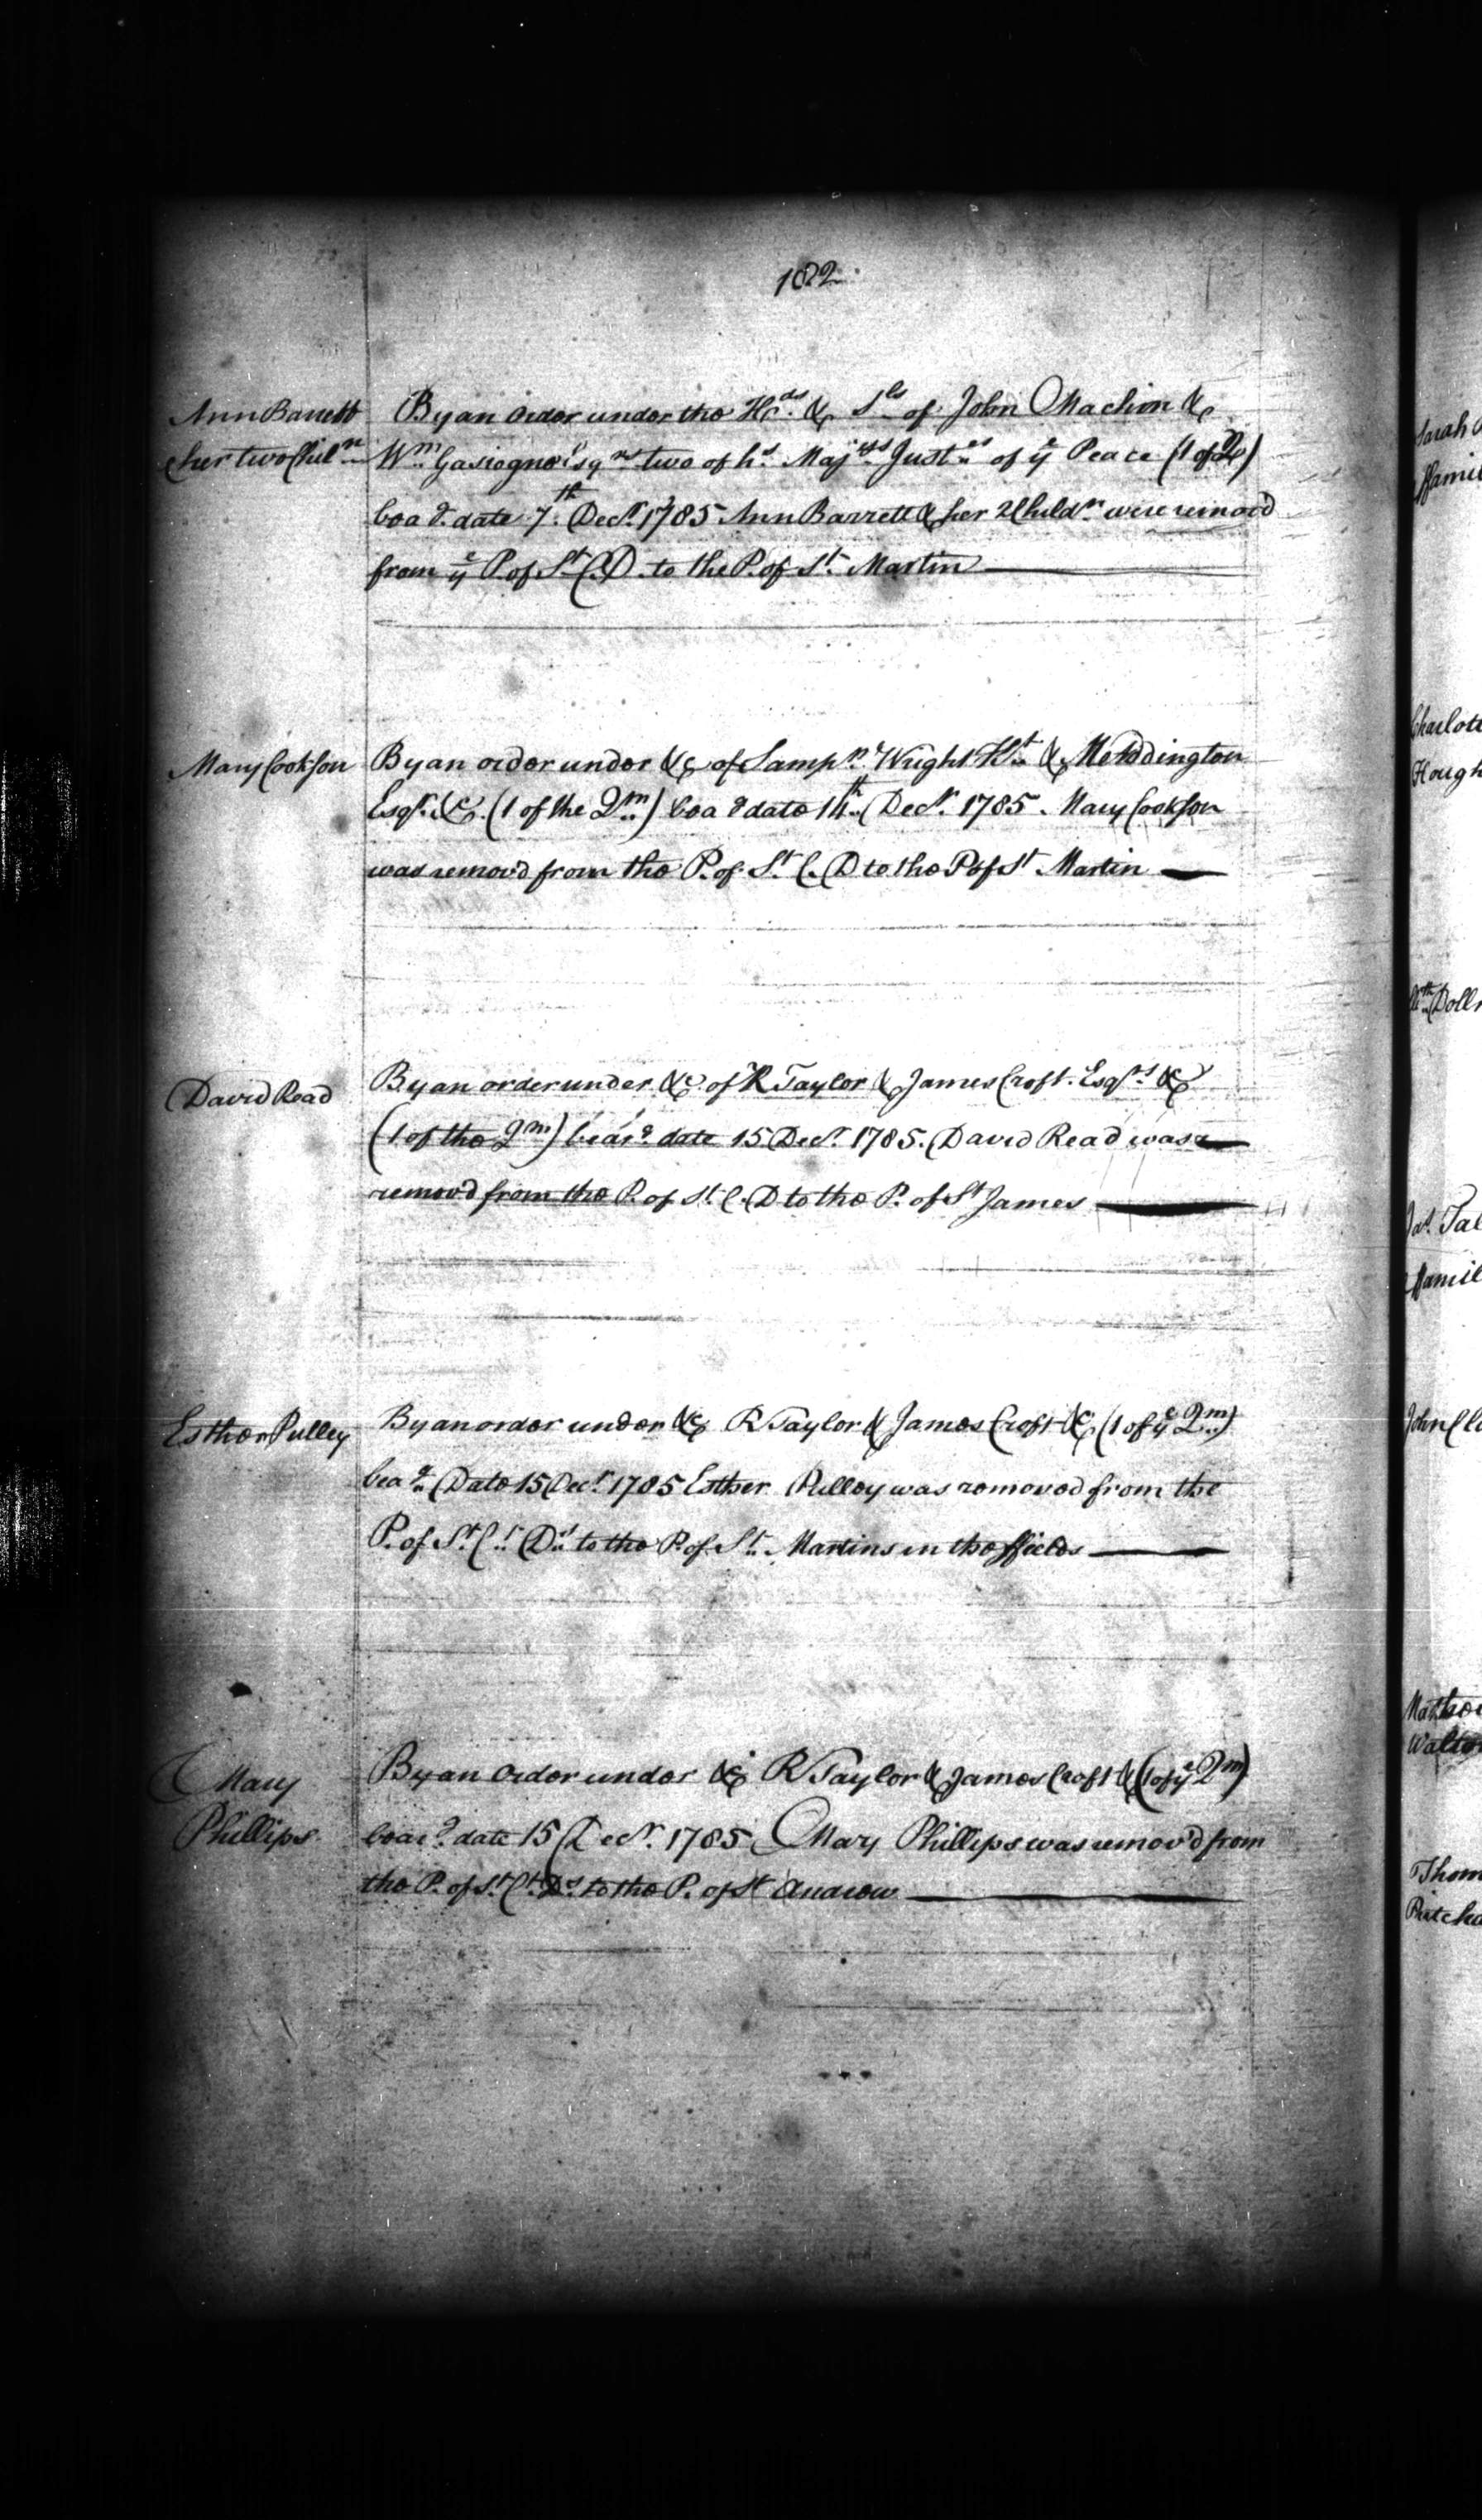 182
Ann Barrett
& her two Chil.n
By an Order under the H.ds & S.ls of John Machin &
W.m Gasiogne Esq.rs two of h.s Maj.tys Just.es of y.e Peace (1 of
bea.g date 7.th Dec.r 1785 Ann Barrett & her 2 Child.n were remov'd
from y.e P. of S.t C. D. to the P. of S.t Martin
Mary Cookson
By an order under &c of Samp.n Wright K.t & M Addington
Esq.r &c. (1 of the Q.m) bea.g date 14.th Dec.r 1785. Mary Cookson
was remov'd from the P. of S.t C. D to the P of S.t Martin
David Read
By an order under &c of R Taylor & James Croft Esq.rs &c
(1 of the Q.m) bear.g date 15 Dec.r 1785. David Read was
remov'd from the P. of S.t C. D to the P. of S.t James
Esther Pulley
By an order under &c R Taylor & James Croft &c (1 of y.e Q.m)
bea.g Date 15 Dec.r 1785 Esther Pulley was removed from the
P. of S.t C.t D.s to the P. of S.t Martins in the ffields
Mary
Phillips
By an Order under &c R Taylor & James Croft & (1 of y.e Q.m)
bear.g date 15 Dec.r 1785 Mary Phillips was remov'd from
the P. of S.t C.t D.s to the P. of S.t Andrew
Sarah
ffamil
Charlott
Hough
Ja.s Tal
ffamil
John Cl
Mathew
Walter
Thom
Pritcha